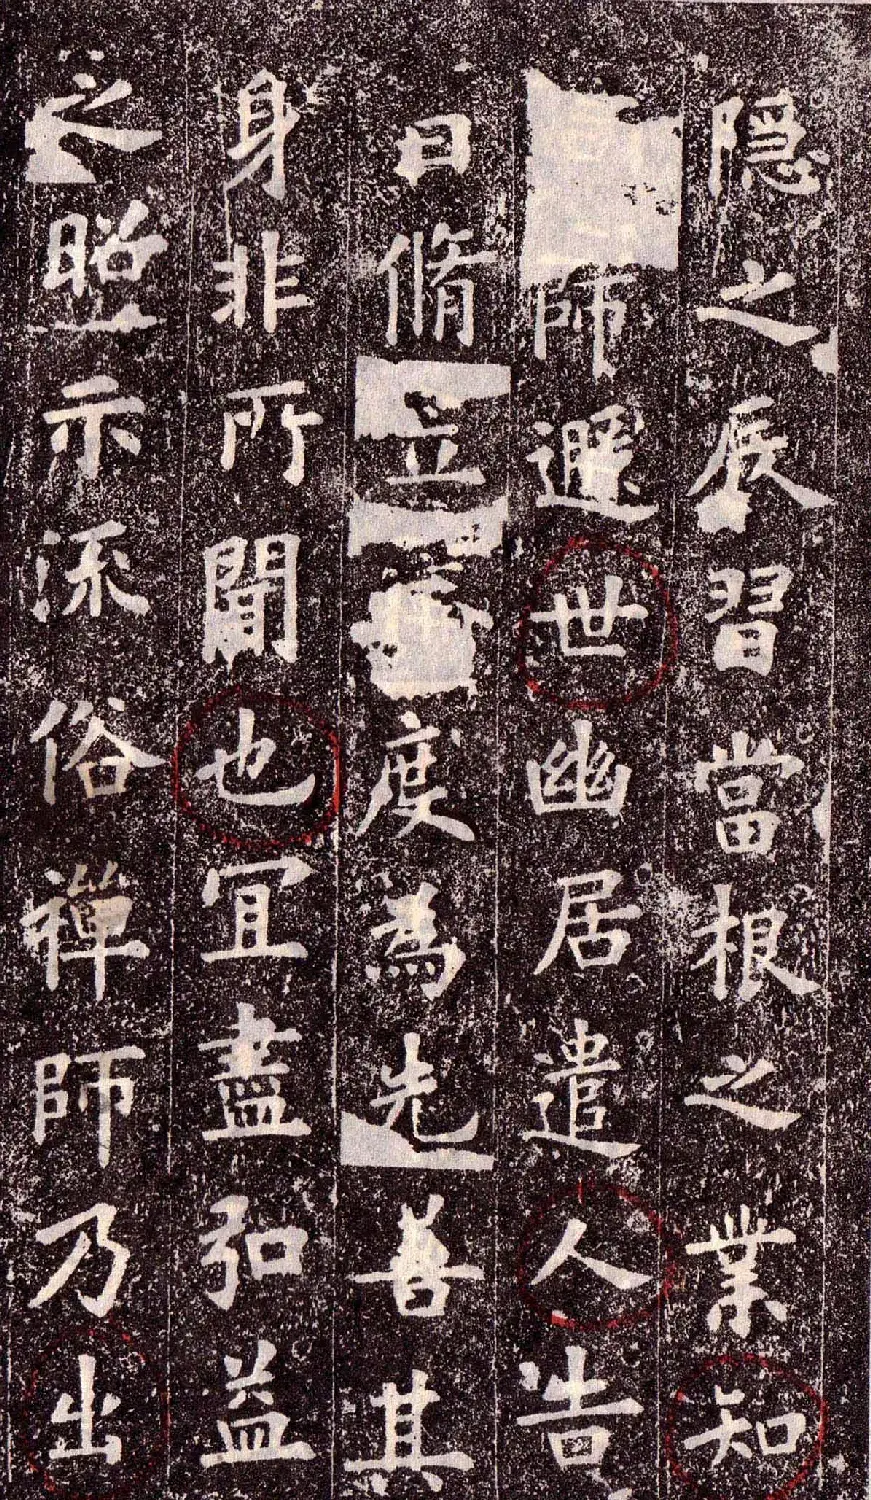 隠之辰習當根之業知
師遯世幽居遣人告
曰脩立度為先善其
身非所聞也宜盡弘益
之昭示流俗禅師乃出